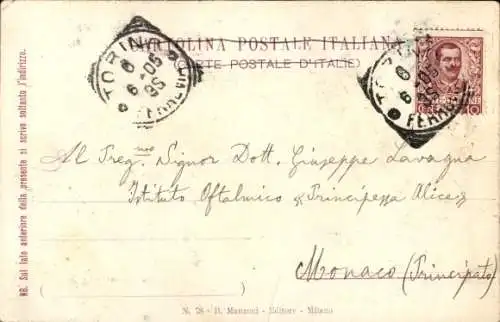 CARTOLINA POSTALE ITALIANA
(CARTE POSTALE D'ITALIE)
TORINO
FERROVIA
TORINO
FERROVIA
Al Preg.mo Signor Dott. Giuseppe Lavagna
Istituto Oftalmico "Principessa Alice"
Monaco (Principato)
N. 78 - D. Manzoni - Editore - Milano
NB. Sul lato anteriore della presente si scrive soltanto l'indirizzo.